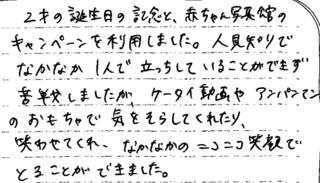 2才の誕生日の記念と、赤ちゃん写真館の
キャンペーンを利用しました。人見知りで
なかなか1人で立っちしていることができず
苦労しましたが、ケータイ動画や アンパンマン
のおもちゃで気をそらしてくれたり、
笑わせてくれ、なかなかのニコニコ笑顔で
とることができました。